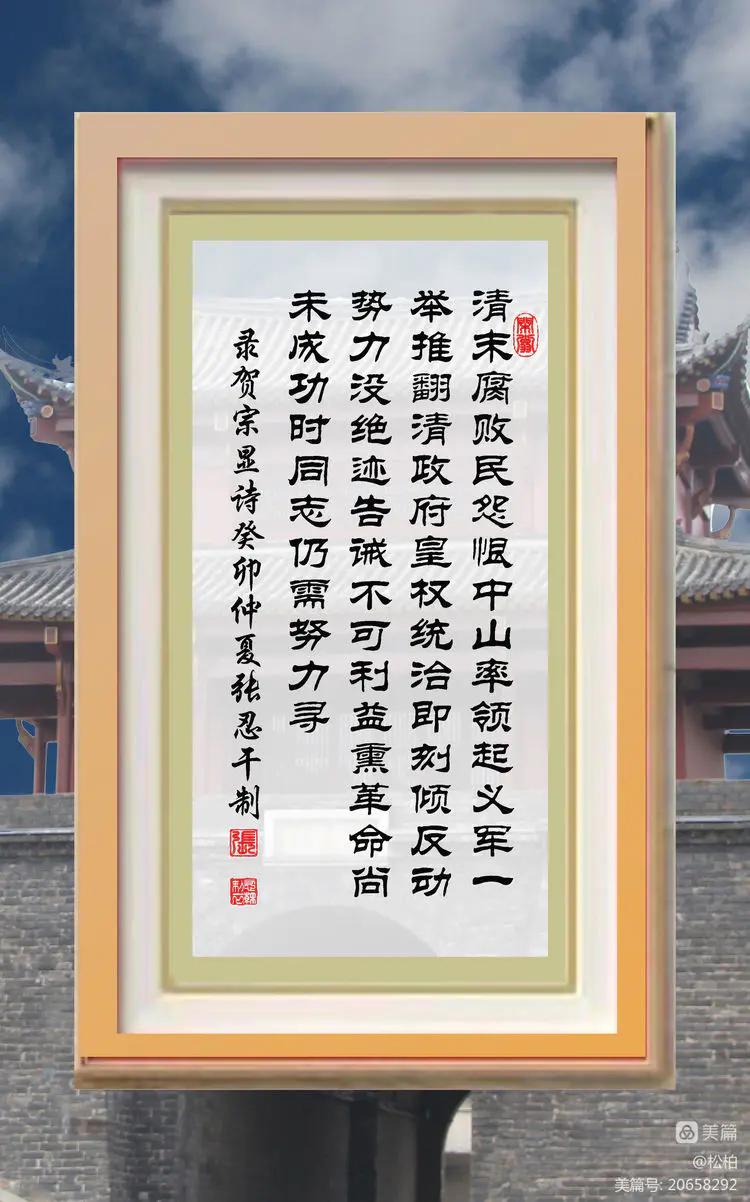 清末腐败民怨恨中山率领起义军一
举推翻清政府皇权统治即刻倾反动
势力没绝迹告诫不可利益熏革命尚
未成功时同志仍需努力寻
录贺宗显诗癸卯仲夏张忍千制
美篇
@松柏
美篇号: 20658292